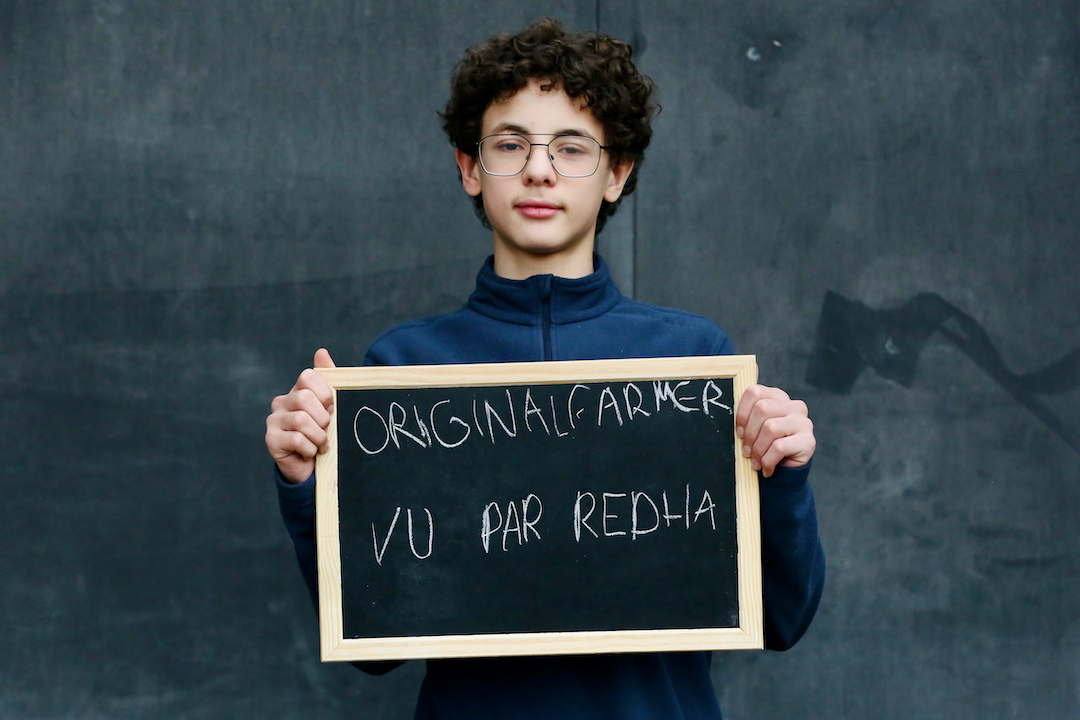 ORIGINALFARMER
VU PAR REDHA